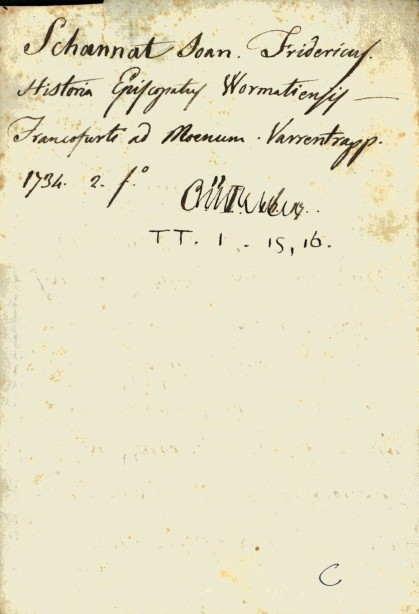 Schannat Joan. Fridericus.
Historia Episcopatus Wormatiensis —
Francofurti ad Moenum. Varrentrapp.
1734. 2. f.º
TT. 1 - 15, 16.
C